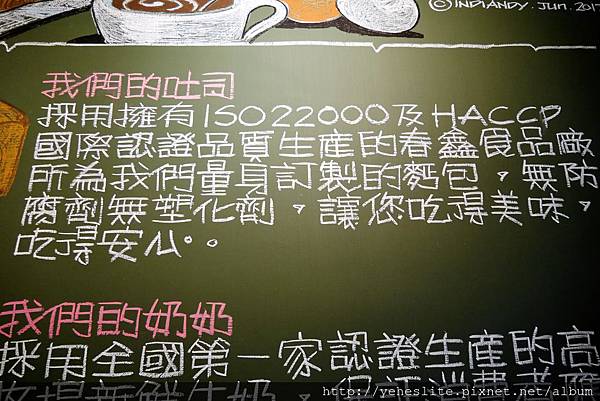 ©INDIANDY.JUN.2017
我們的吐司
採用擁有ISO22000及HACCP
國際認證品質生產的春鑫食品廠
所為我們量身訂製的麵包，無防
腐劑無塑化劑，讓您吃得美味，
吃得安心。
我們的奶奶
採用全國第一家認證生產的高
牧場新鮮牛奶，
http://yeheslite.pixnet.net/album